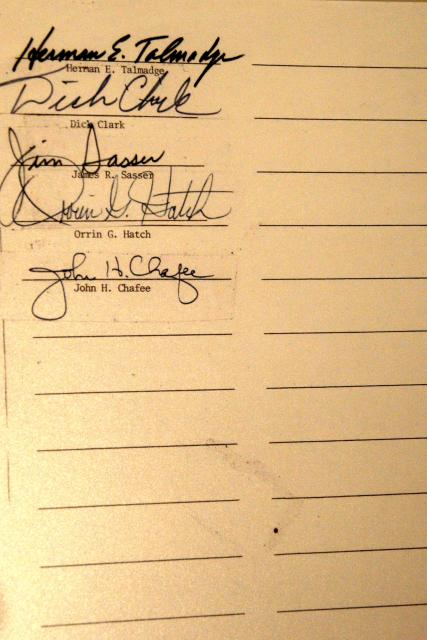 Herman E. Talmadge
Herman E. Talmadge
Dick Clark
Dick Clark
Jim Sasser
James R. Sasser
Orrin G. Hatch
Orrin G. Hatch
John H. Chafee
John H. Chafee